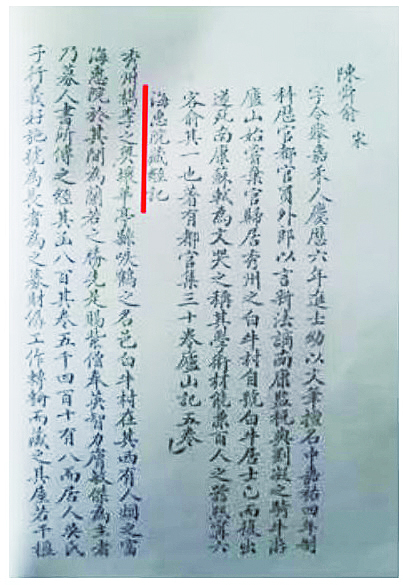 陳舜俞 宋
字令舉嘉禾人慶歷六年進士幼以文筆擅名中嘉祐四年制
科歷官都官員外郎以言新法謫南康監稅與劉凝之騎牛游
廬山始嘗棄官歸居秀州之白牛村自號白牛居士已而復出
遂死南康蘇軾為文哭之稱其學術材能兼百人之器 六
客俞其一也著有都官集三十卷廬山記五卷
海惠院藏經記
秀州檇李之奧壤華亭縣唳鶴之名邑白牛村在其西有人烟之富
海惠院於其間為蘭若之勝先是賜紫僧奉英智力膚敏傑為主者
乃募人書所傳之經其函八百其卷五千四百十有八而居人吳氏
子行義好施號為長者為之募財僝工作轉輪而藏之其屋若干楹